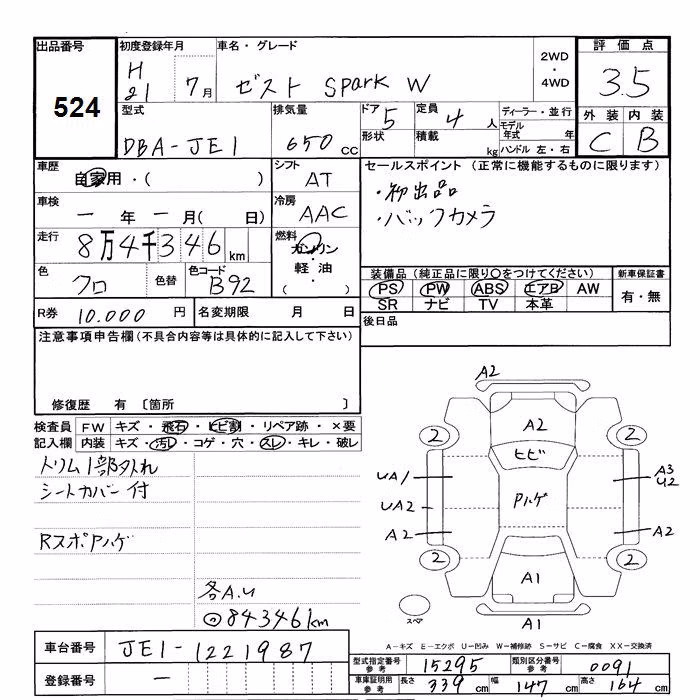 出品番号 初度登録年月 車名・グレード 評価点
524
H21 7月 ゼスト Spark W 2WD・4WD 3.5
型式 排気量 ドア 5 定員 4人 ディーラー・並行 外装 内装
DBA-JE1 650cc 形状 積載 kg モデル年式 年 C B
ハンドル 左・右
車歴 自家用・( ) シフト AT セールスポイント (正常に機能するものに限ります)
車検 一年一月(日) 冷房 AAC ・初出品
・バックカメラ
走行 8万4千346km 燃料 ガソリン・軽油・( )
色 クロ 色替 色コード B92
装備品 (純正品に限り○をつけてください) 新車保証書
PS PW ABS エアB AW 有・無
SR ナビ TV 本革
R券 10.000円 名変期限 月 日 後日品
注意事項申告欄(不具合内容等は具体的に記入して下さい)
修復歴 有 〔箇所 〕
検査員 FW キズ・飛石・ヒビ割・リペア跡・×要
記入欄 内装 キズ・汚レ・コゲ・穴・スレ・キレ・破レ
トリム1部外れ
シートカバー付
RスポPハゲ
各A.U
◎84346km
A2
A2
2 2
ヒビ
UA1 A3
U2
Pハゲ
UA2
A2 A2
2 2
A1
スペア A1
A-キズ E-エクボ U-凹み W-補修跡 S-サビ C-腐食 XX-交換済
車台番号 JE1-1221987
型式指定番号 参考 15295 類別区分番号 参考 0091
登録番号 —
車庫証明用 参考 長さ 339cm 幅 147cm 高さ 164cm